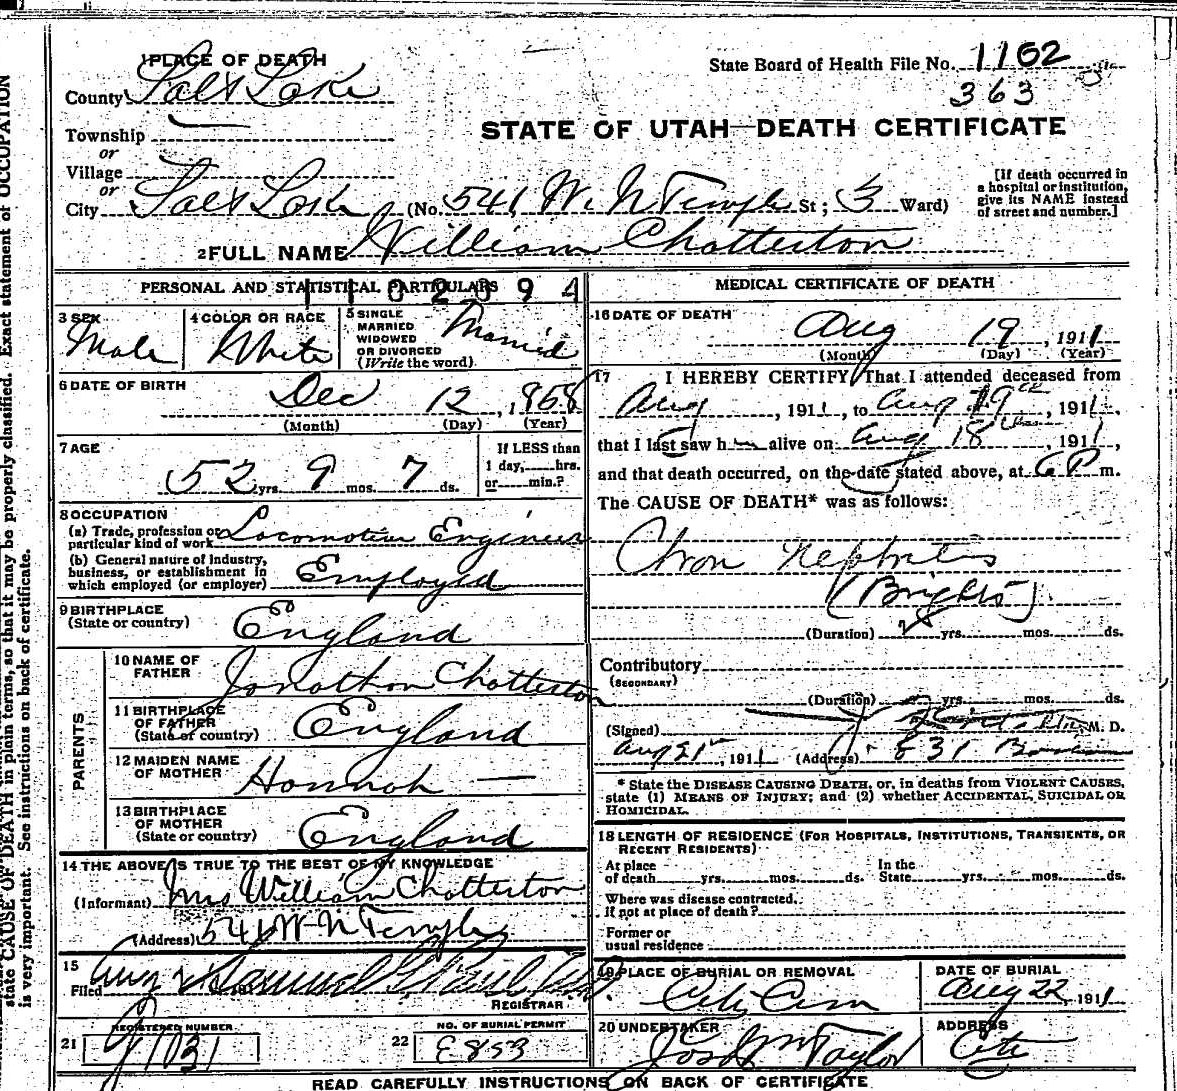 1 PLACE OF DEATH
County Salt Lake
Township
or
Village
or
City Salt Lake (No. 541 W. N Temple St; 3 Ward)
State Board of Health File No. 1102
363
STATE OF UTAH—DEATH CERTIFICATE
[If death occurred in
a hospital or institution,
give its NAME instead
of street and number.]
2 FULL NAME William Chatterton
PERSONAL AND STATISTICAL PARTICULARS
1102094
3 SEX Male
4 COLOR OR RACE White
5 SINGLE
MARRIED
WIDOWED
OR DIVORCED
(Write the word). Married
6 DATE OF BIRTH
Dec 12, 1858
(Month) (Day) (Year)
7 AGE
52 yrs. 9 mos. 7 ds.
If LESS than
1 day, hrs.
or min.?
8 OCCUPATION
(a) Trade, profession or
particular kind of work Locomotive Engineer
(b) General nature of industry,
business, or establishment in
which employed (or employer) Employed
9 BIRTHPLACE
(State or country) England
PARENTS
10 NAME OF
FATHER Jonathon Chatterton
11 BIRTHPLACE
OF FATHER
(State or country) England
12 MAIDEN NAME
OF MOTHER Hannah —
13 BIRTHPLACE
OF MOTHER
(State or country) England
14 THE ABOVE IS TRUE TO THE BEST OF MY KNOWLEDGE
(Informant) Mrs William Chatterton
(Address) 541 W N Temple
15
Filed Aug Samuel G. Paul
REGISTRAR
REGISTERED NUMBER
21 1031
NO. OF BURIAL PERMIT
22 E853
MEDICAL CERTIFICATE OF DEATH
16 DATE OF DEATH
Aug 19, 1911
(Month) (Day) (Year)
17 I HEREBY CERTIFY, That I attended deceased from
Aug, 1911, to Aug 19th, 1911,
that I last saw him alive on Aug 18th, 1911,
and that death occurred, on the date stated above, at 6 P m.
The CAUSE OF DEATH* was as follows:
Chron Nephritis
(Brights)
(Duration) yrs. mos. ds.
Contributory
(SECONDARY)
(Duration) yrs. mos. ds.
(Signed) M. D.
Aug 21st, 1911 (Address) 831
* State the DISEASE CAUSING DEATH, or, in deaths from VIOLENT CAUSES,
state (1) MEANS OF INJURY; and (2) whether ACCIDENTAL, SUICIDAL OR
HOMICIDAL.
18 LENGTH OF RESIDENCE (FOR HOSPITALS, INSTITUTIONS, TRANSIENTS, OR
RECENT RESIDENTS)
At place
of death yrs. mos. ds.
In the
State yrs. mos. ds.
Where was disease contracted,
if not at place of death?
Former or
usual residence
19 PLACE OF BURIAL OR REMOVAL
City Cem
DATE OF BURIAL
Aug 22, 1911
20 UNDERTAKER
Jos Wm Taylor
ADDRESS
City
READ CAREFULLY INSTRUCTIONS ON BACK OF CERTIFICATE
state CAUSE OF DEATH in plain terms, so that it may be properly classified. Exact statement of OCCUPATION
is very important. See instructions on back of certificate.